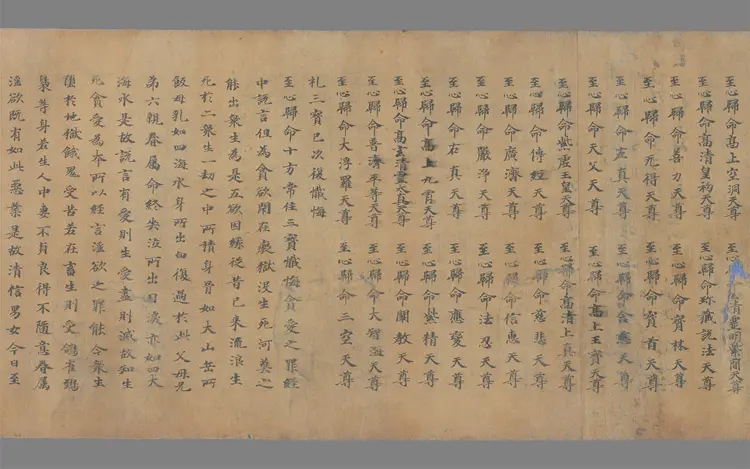 至心歸命高上空洞天尊 至心 清靈明業簡天尊
至心歸命高清皇初天尊 至心歸命珎藏說法天尊
至心歸命善力天尊 至心歸命寶林天尊
至心歸命无得天尊 至心歸命寶首天尊
至心歸命左真天尊 至心歸命含 天尊
至心歸命天父天尊 至心歸命高上王寶天尊
至心歸命紫虛玉皇天尊 至心歸命高清上真天尊
至心歸命傳經天尊 至心歸命慈悲天尊
至心歸命廣濟天尊 至心歸命信惠天尊
至心歸命嚴淨天尊 至心歸命法忍天尊
至心歸命右真天尊 至心歸命應變天尊
至心歸命高上九霄天尊 至心歸命紫精天尊
至心歸命高玄清靈太真天尊 至心歸命開教天尊
至心歸命普濟平等天尊 至心歸命大智 天尊
至心歸命大浮羅天尊 至心歸命三空天尊
礼三寶已次復懺悔
至心歸命十方常住三寶懺悔貪愛之罪經
中說言但為貪欲閉在癡獄沒生死河莫之
能出衆生為是五欲因緣從昔已來流浪生
死於一衆生一劫之中所積身骨如大山岳所
飲母乳如四海水身所出血復過於此父母兄
弟六親眷屬命終哭泣所出目淚亦如四大
海水是故說言有愛則生愛盡則滅故知生
死貪愛為本所以經言淫欲之罪能令衆生
墮於地獄餓鬼受苦若在畜生則受鴿雀鴛
鴦等身若生人中妻不貞良得不隨意眷屬
淫欲既有如此惡業是故清信男女今日至